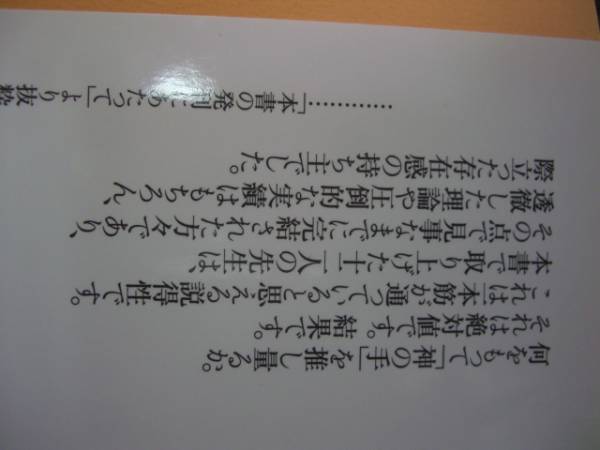 何をもって「神の手」を推し量るか。
それは絶対値です。結果です。
これは一本筋が通っていると思える説得性です。
本書で取り上げた人の先生は、
その点で見事なまでに完結された方々であり、
透徹した理論や圧倒的な実績はもちろん、
際立った存在感の持ち主でした。
…………「本書の発刊にあたって」より抜粋